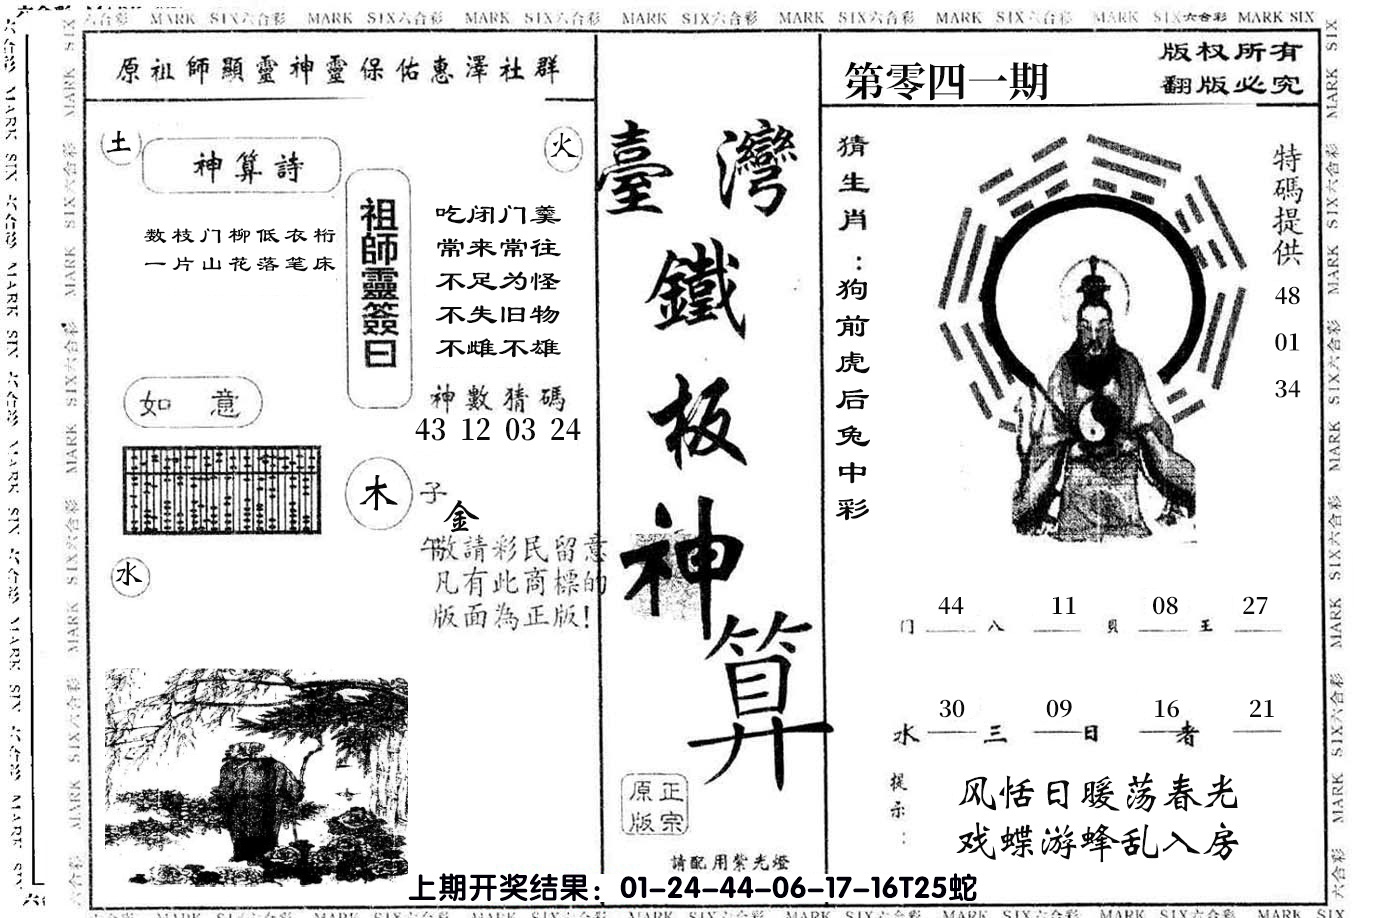 MARK SIX六合彩 MARK SIX六合彩 MARK SIX六合彩 MARK SIX六合彩 MARK SIX六合彩 MARK SIX六合彩 MARK SIX六合彩 MARK SIX
原祖師顯靈神靈保佑惠澤社群
第零四一期
版权所有
翻版必究
土
神算詩
火
数枝门柳低衣桁
一片山花落笔床
祖師靈簽曰
吃闭门羹
常来常往
不足为怪
不失旧物
不雌不雄
神數猜碼
43 12 03 24
如意
木
子
金
午
敬請彩民留意
凡有此商標的
版面為正版!
水
臺灣
鐵
板
神
算
正宗
原版
請配用紫光燈
猜生肖:狗前虎后兔中彩
特碼提供
48
01
34
门 44 八 11 貝 08 王 27
水 30 三 09 日 16 者 21
提示:
风恬日暖荡春光
戏蝶游蜂乱入房
上期开奖结果：01-24-44-06-17-16T25蛇